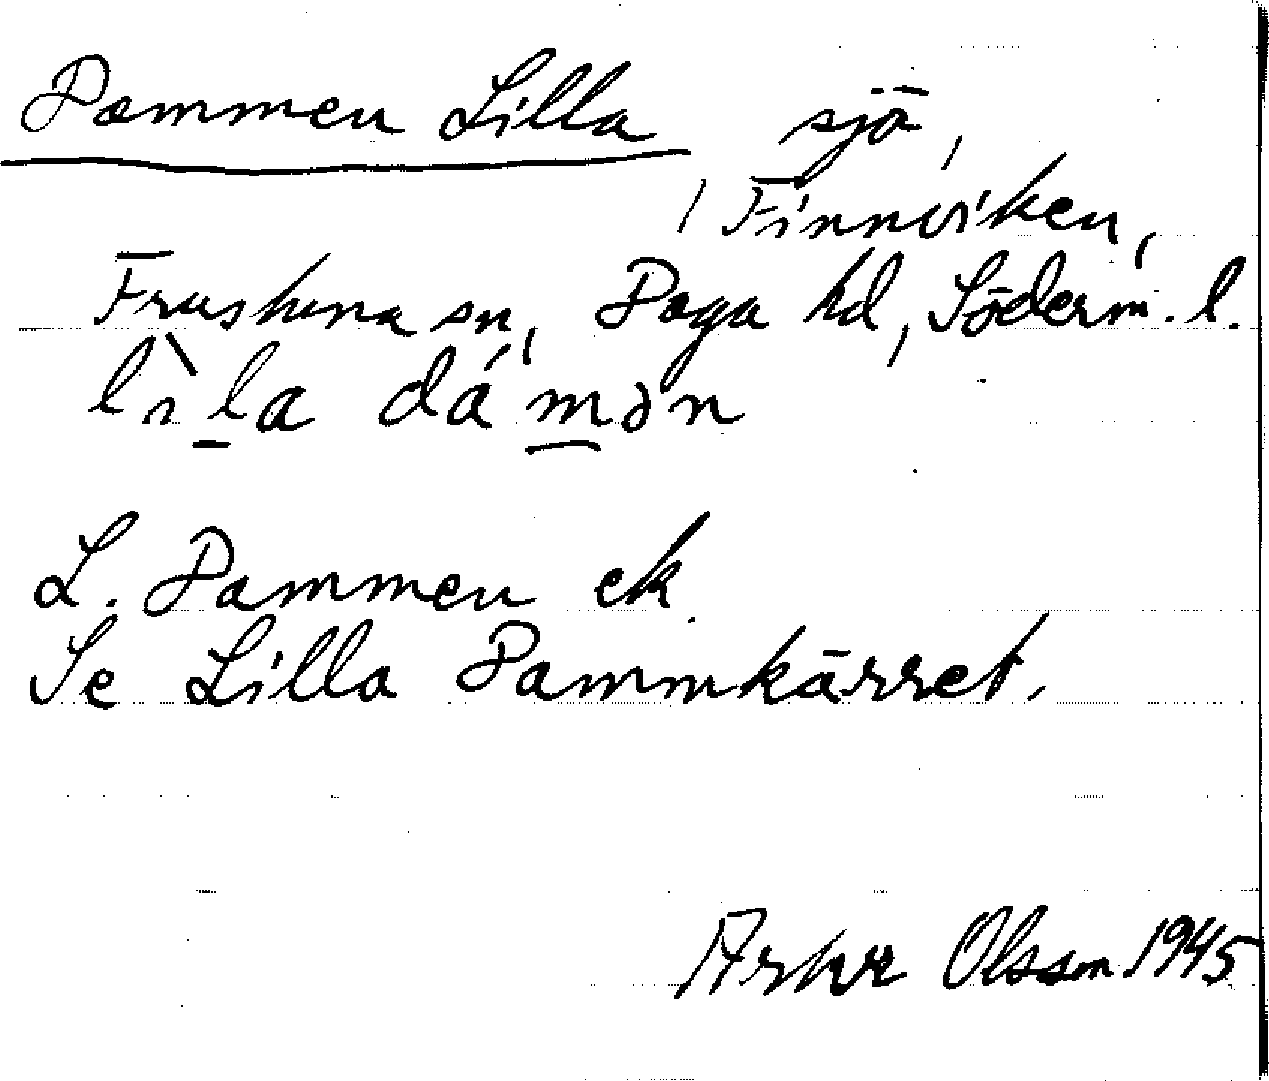 Dammen Lilla, sjö,
i Finnviken,
Frustuna sn, Daga hd, Söderm. l.
lìla dámən
L. Dammen ek.
Se Lilla Dammkärret.
Olsson 1945